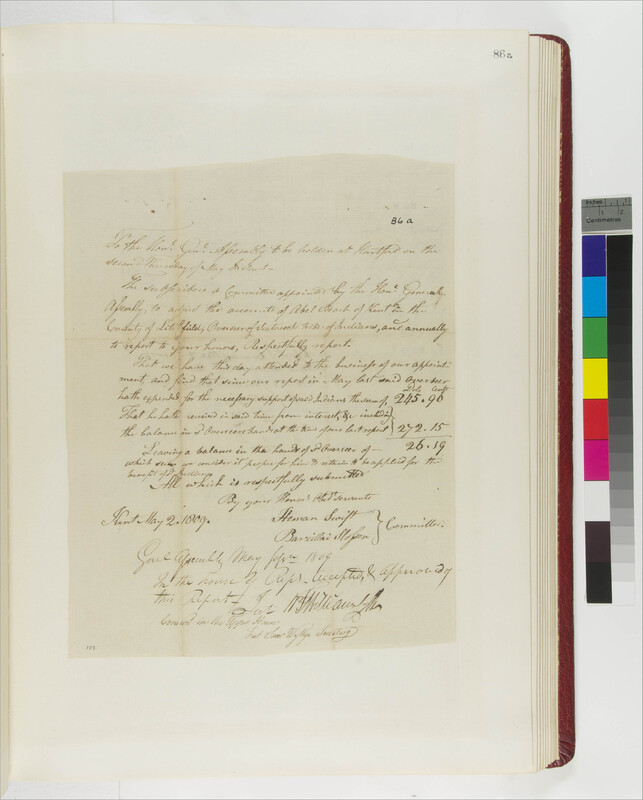 86a
86a
To the Honl. Genl. Assembly to be holden at Hartford on the
second Thursday of May Instant.
The Subscribers a Committee appointed by the Honl. General
Assembly, to adjust the accounts of Abel Beach of Kent in the
County of Litchfield, Overseer of Tribe of Indians, and annually
to report to your honors, Respectfully report.
That we have this day attended to the business of our appoint-
ment, and find that since our report in May last said Overseer
Dols Cents
hath expended for the necessary support of said Indians the sum of, 245.96
That he hath received in said time from interest, &c including
the balance in sd. Overseers hands at the time of our last report 272.15
Leaving a balance in the hands of sd. Overseer of — 26.19
which sum we consider it proper for him to retain to be applied for the
benefit of sd. Indians
All which is respectfully submitted
By your Honors Obdt. servants
Kent May 2. 1809.
Heman Swift
Barzillai Slosson
Committee.
Genl Assembly May Sessn 1809
In the House of Reps. Accepted & approved of
this Report
Test Williams Clk
Concurd in the Upper House
Test Saml Wyllys Secretary